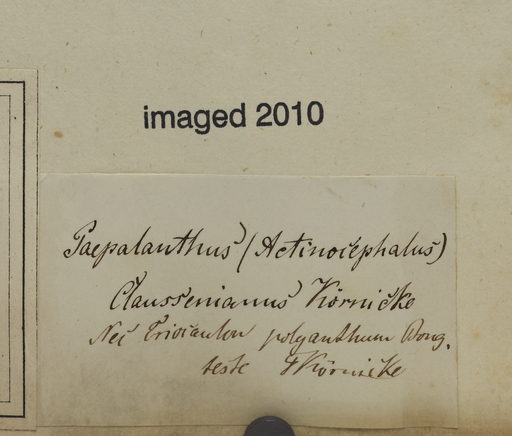 imaged 2010
Paepalanthus (Actinocephalus)
Claussenianus Körnicke
Nec Eriocaulon polyanthum Bong.
teste FKörnicke